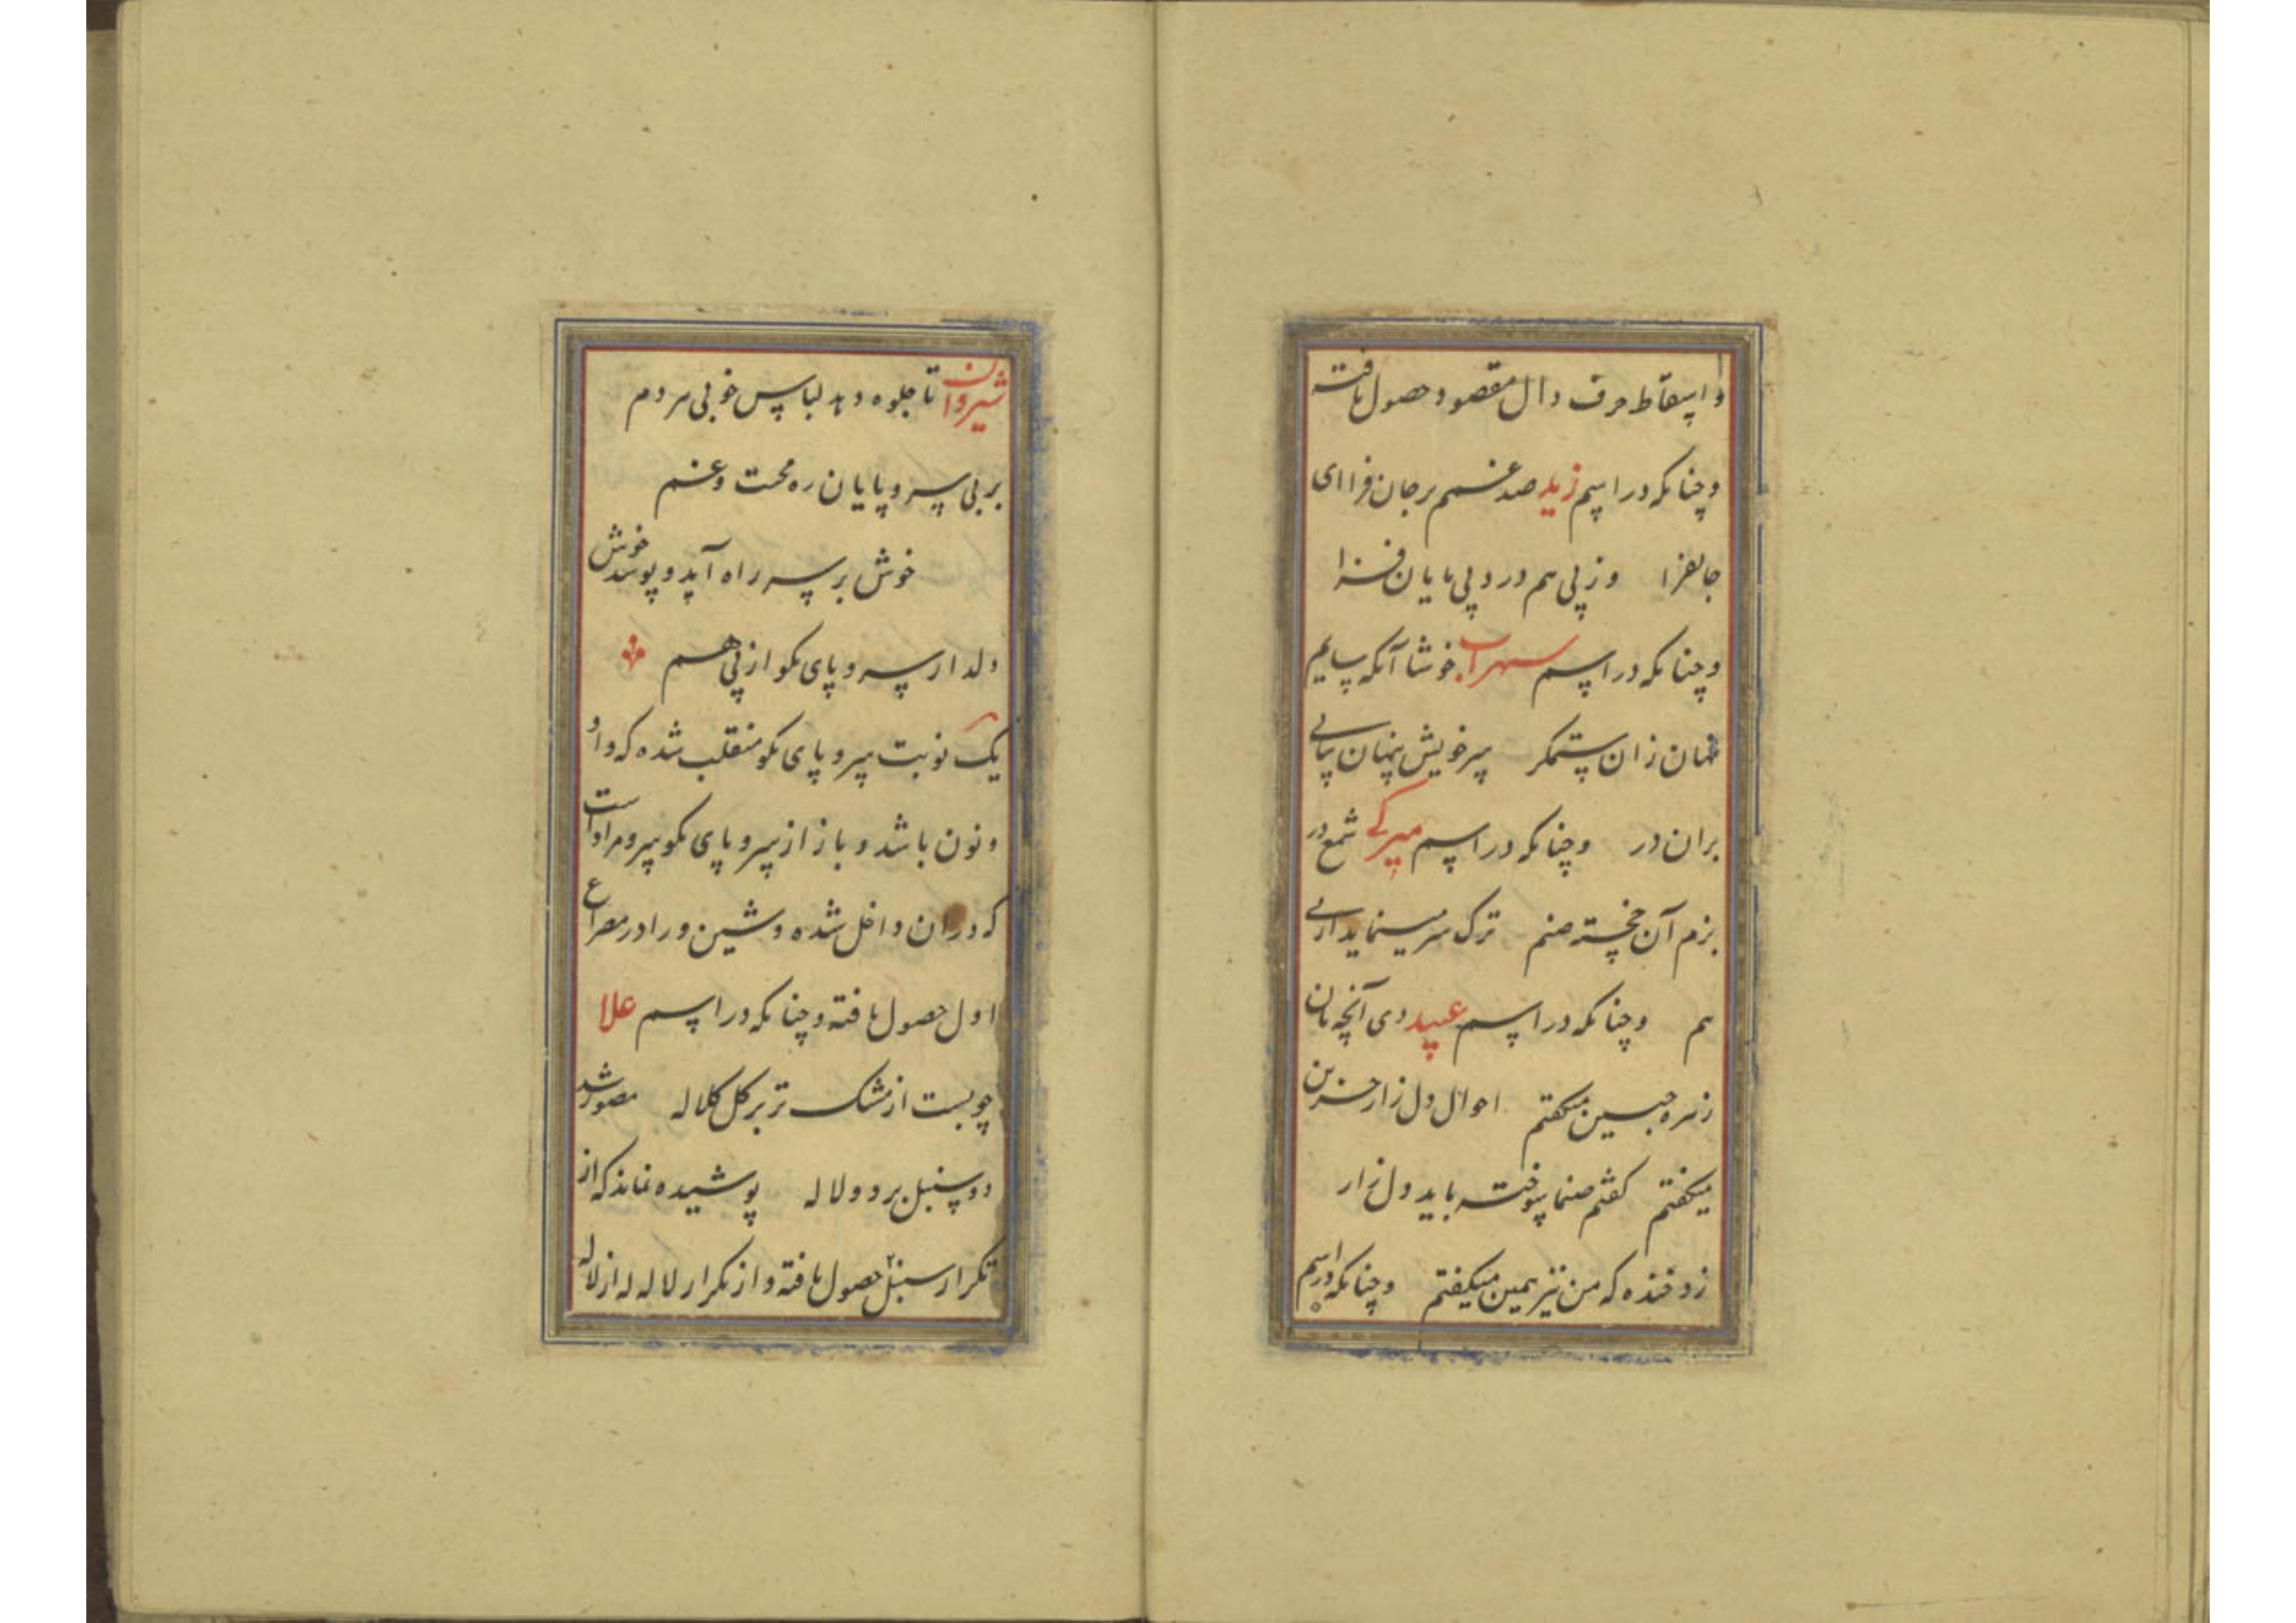 و اسقاط حرف دال مقصود حصول یافته
و چنانکه در اسم زید صد غم بر جان فزا ای
جانفزا وز پی هم درد بی پایان فزا
و چنانکه در اسم سهراب خوشا آنکه سایم
نهان زان ستمگر سر خویش پنهان بپای
بران در و چنانکه در اسم میرکی شمع در
بزم آن خجسته صنم ترک سر مینماید از پی
هم و چنانکه در اسم عبید دی آنچه بآن
زهره جبین میگفتم احوال دل زار حزین
میگفتم گفتم صنما سوخته باید دل زار
زد خنده که من نیز همین میگفتم و چنانکه در اسم
شیروان تا جلوه دهد لباس خوبی مردم
بر بی سر و پایان ره محنت و غم
خوش بر سر راه آید و پوشد خوش
دلدار سر و پای نکو از پی هم
یک نوبت سر و پای نکو منقلب شده که واو
و نون باشد و باز از سر و پای نکو سرو مراد است
که در ان داخل شده و شین و را در مصراع
اول حصول یافته و چنانکه در اسم علا
چو بست از مشک تر بر گل کلاله مصور شد
دو سنبل بر دو لاله پوشیده نماند که از
تکرار سنبل حصول یافته و از تکرار لاله له از لاله